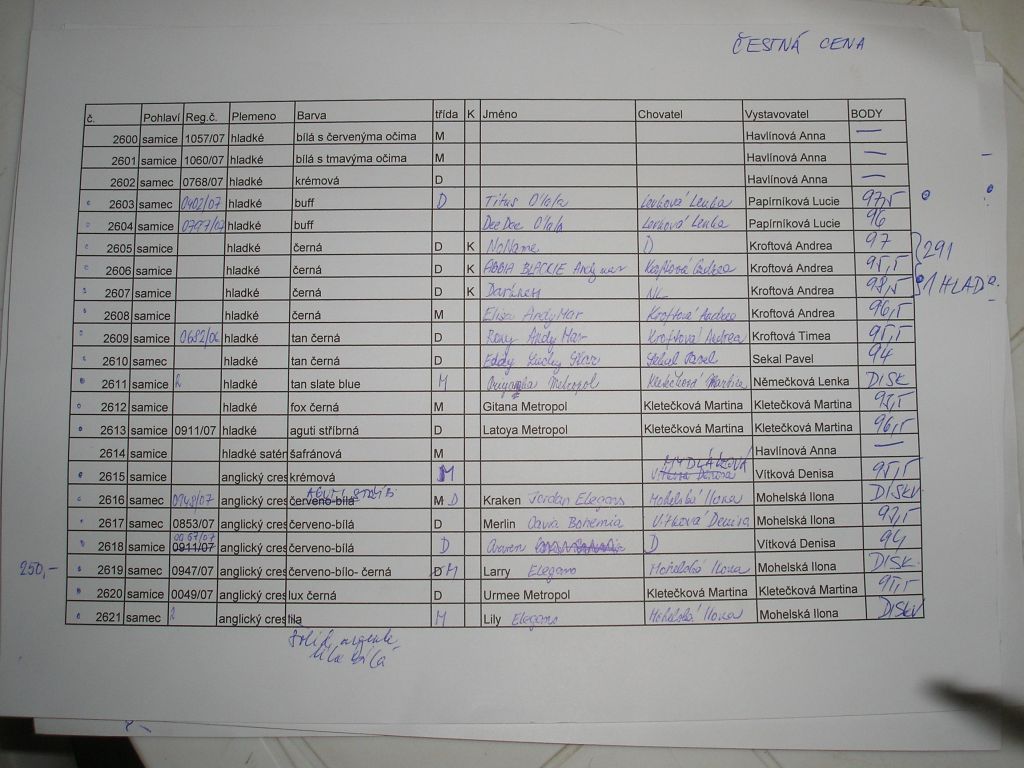 ČESTNÁ CENA
č. Pohlaví Reg.č. Plemeno Barva třída K Jméno Chovatel Vystavovatel BODY
2600 samice 1057/07 hladké bílá s červenýma očima M Havlínová Anna —
2601 samice 1060/07 hladké bílá s tmavýma očima M Havlínová Anna —
2602 samec 0768/07 hladké krémová D Havlínová Anna —
2603 samec 0402/07 hladké buff D Titus O'lala Lenková Lenka Papírníková Lucie 97,5
2604 samice 0797/07 hladké buff DeeDee O'lala Lenková Lenka Papírníková Lucie 96
2605 samice hladké černá D K NoName D Kroftová Andrea 97
291
2606 samice hladké černá D K BLACKIE Andy mar Kroftová Andrea Kroftová Andrea 95,5
2607 samice hladké černá D K Darkness Kroftová Andrea 98,5
1 HLAD
2608 samice hladké černá M Elisa AndyMar Kroftová Andrea Kroftová Andrea 96,5
2609 samice 0682/06 hladké tan černá D Roxy Andy Mar Kroftová Andrea Kroftová Timea 95,5
2610 samec hladké tan černá D Eddy Lucky Sekal Pavel Sekal Pavel 94
2611 samice hladké tan slate blue M Metropol Kletečková Martina Němečková Lenka DISK
2612 samice hladké fox černá M Gitana Metropol Kletečková Martina Kletečková Martina 92,5
2613 samice 0911/07 hladké aguti stříbrná D Latoya Metropol Kletečková Martina Kletečková Martina 96,5
2614 samice hladké satén šafránová M Havlínová Anna —
MYDLÁKOVÁ
2615 samice anglický cres krémová M Vítková Denisa Vítková Denisa 95,5
AGUTI STŘÍB
2616 samec 0948/07 anglický cres červeno-bílá M D Kraken Jordan Elegans Mohelská Ilona Mohelská Ilona DISKV
2617 samec 0853/07 anglický cres červeno-bílá D Merlin Cavia Bohemia Vítková Denisa Mohelská Ilona 92,5
2618 samice 0911/07 anglický cres červeno-bílá D D Vítková Denisa 94
250,- 2619 samec 0947/07 anglický cres červeno-bílo- černá D M Larry Elegans Mohelská Ilona Mohelská Ilona DISK
2620 samice 0049/07 anglický cres lux černá D Urmee Metropol Kletečková Martina Kletečková Martina 95,5
2621 samec anglický cres lila M Lily Elegans Mohelská Ilona Mohelská Ilona DISKV
Solid argente
lila bílá